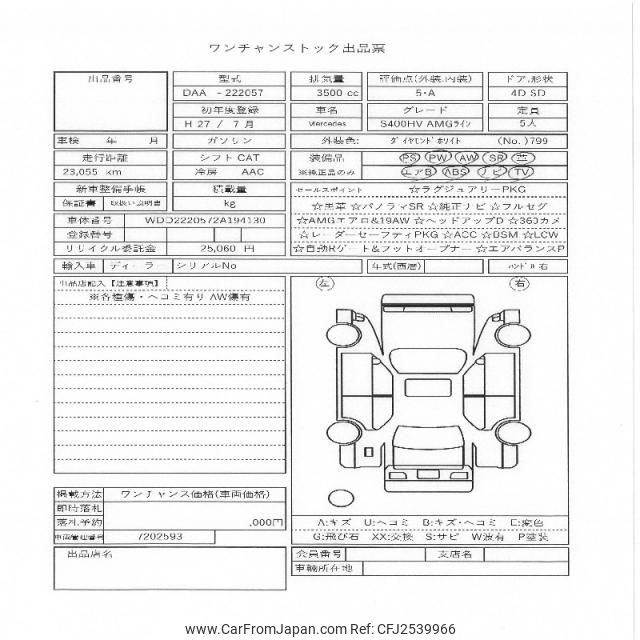 ワンチャンストック出品票
出品番号 型式 排気量 評価点(外装、内装) ドア、形状
DAA -222057 3500 cc 5・A 4D SD
初年度登録 車名 グレード 定員
H 27 / 7 月 Mercedes S400HV AMGライン 5人
車検 年 月 ガソリン 外装色: ダイヤモンドホワイト (No.)799
走行距離 シフト CAT 装備品 PS PW AW SR 革
23,055 km 冷房 AAC ※純正品のみ エアB ABS ナビ TV
新車整備手帳 積載量 セールスポイント ☆ラグジュアリーPKG
保証書 取扱い説明書 kg ☆黒革 ☆パノラマSR ☆純正ナビ ☆フルセグ
車体番号 WDD2220572A194130 ☆AMGエアロ&19AW ☆ヘッドアップD ☆360カメ
登録番号 ☆レーダーセーフティPKG ☆ACC ☆BSM ☆LCW
リサイクル委託金 25,060 円 ☆自動Rゲート&フットオープナー ☆エアバランスP
輸入車 ディーラー シリアルNo 年式(西暦) ハンドル 右
出品店記入【注意事項】 左 右
※各種傷・ヘコミ有り AW傷有
掲載方法 ワンチャンス価格(車両価格)
即時落札
落札予約 ,000円 A:キズ U:ヘコミ B:キズ・ヘコミ C:変色
車両管理番号 7202593 G:飛び石 XX:交換 S:サビ W波有 P塗装
出品店名 会員番号 支店名
車輌所在地
www.CarFromJapan.com Ref: CFJ2539966